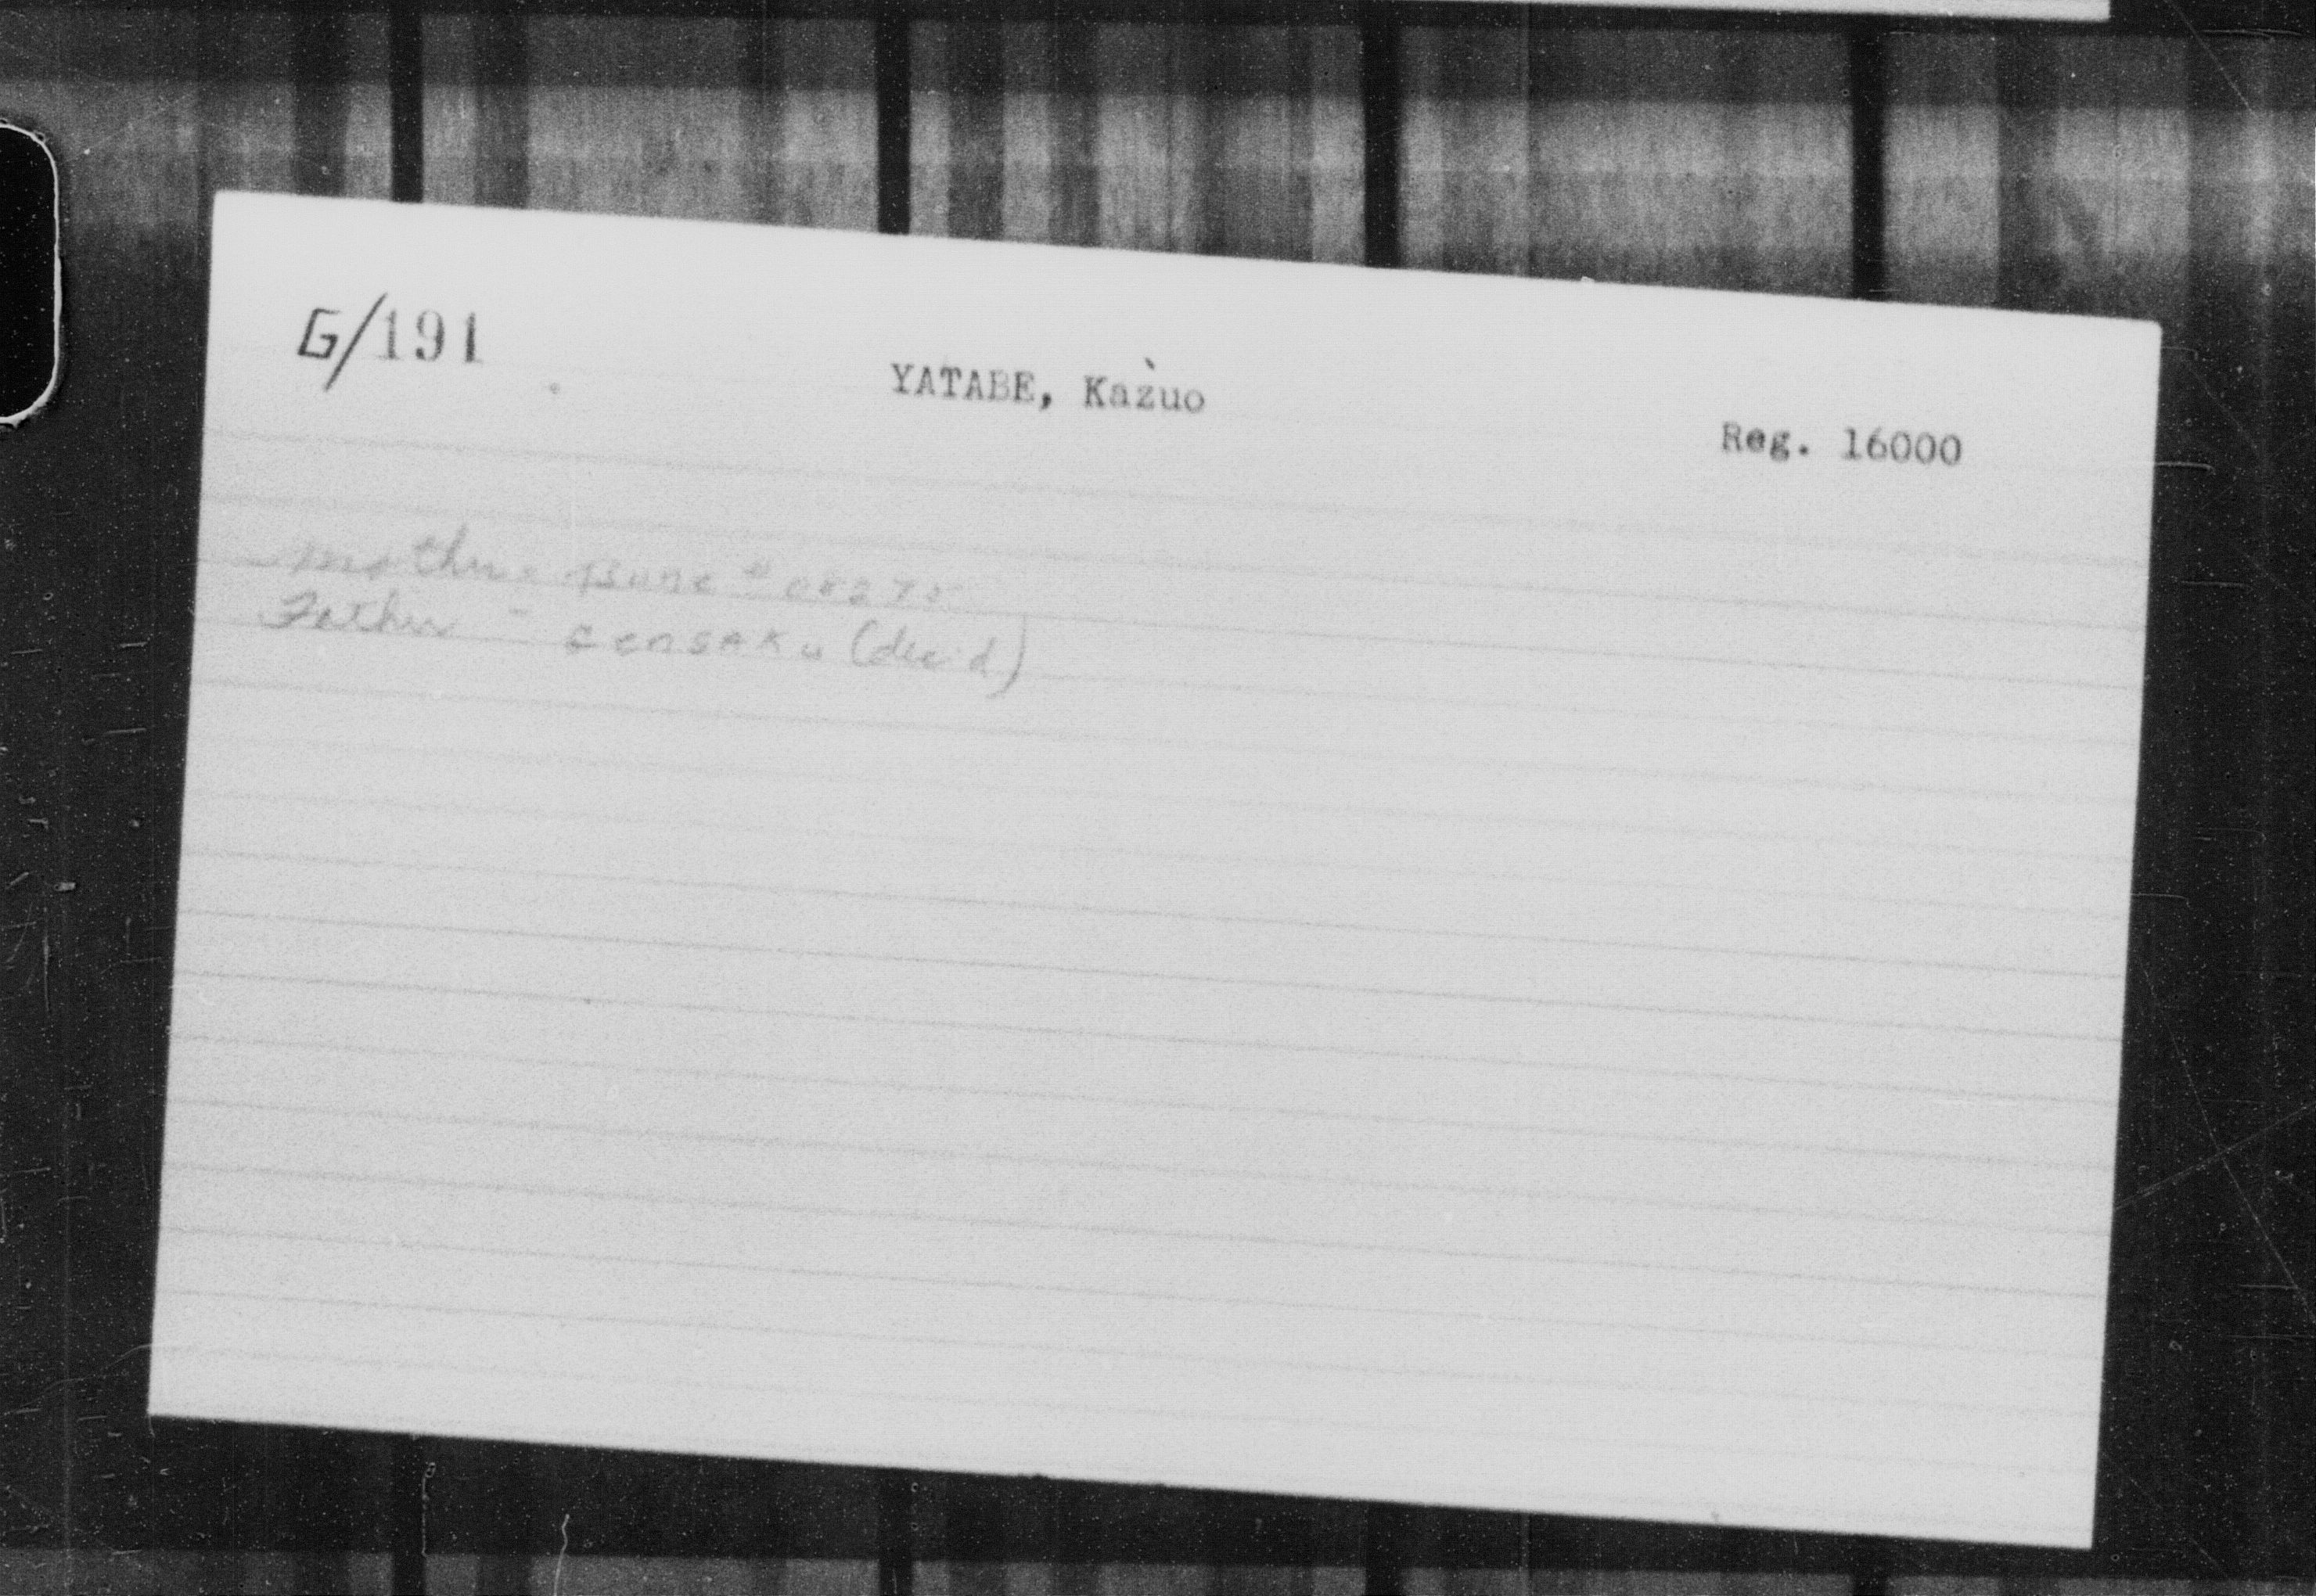 G/191
YATABE, Kazuo
Reg. 16000
Mother - Bune # 08275
Father - Sensaku (dec'd)